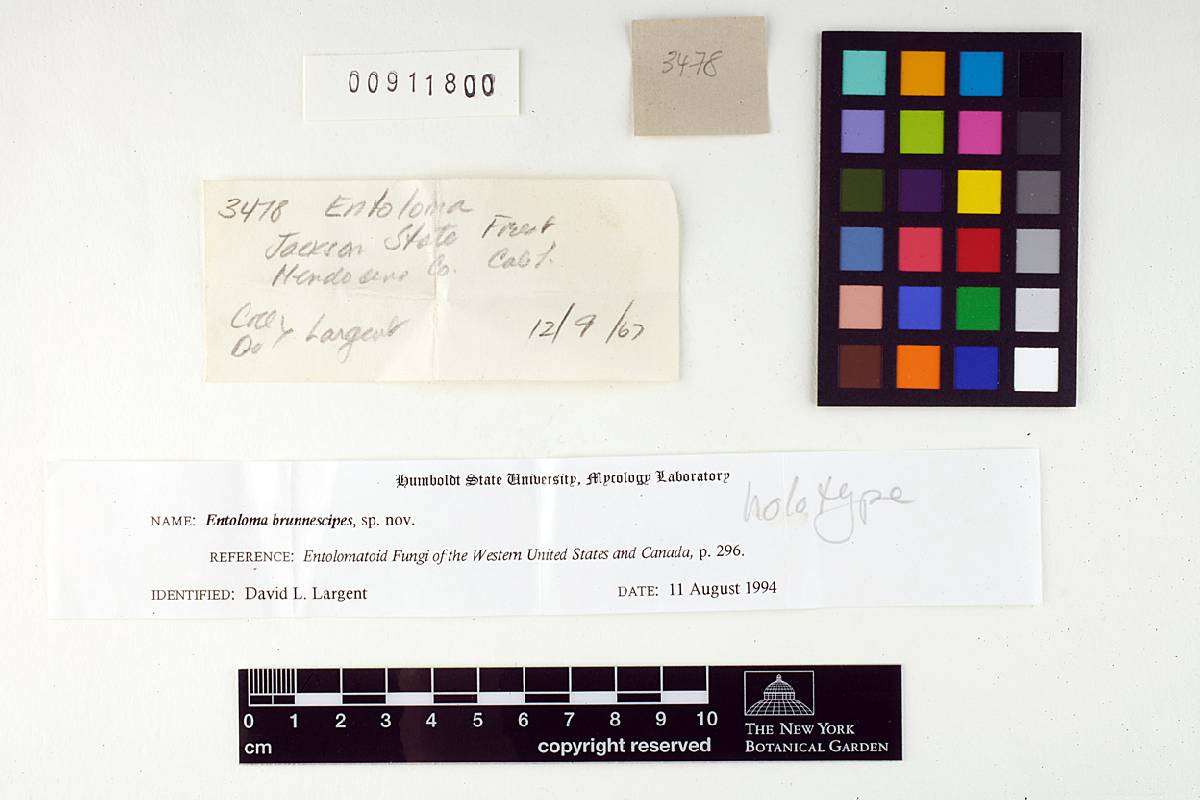 00911800
3478
3478 Entoloma
Jackson State Forest
Mendocino Co. Calif.
Largent 12/9/67
Humboldt State University, Mycology Laboratory
holotype
NAME: Entoloma brunnescipes, sp. nov.
REFERENCE: Entolomatoid Fungi of the Western United States and Canada, p. 296.
IDENTIFIED: David L. Largent DATE: 11 August 1994
0 1 2 3 4 5 6 7 8 9 10
cm
copyright reserved
THE NEW YORK
BOTANICAL GARDEN